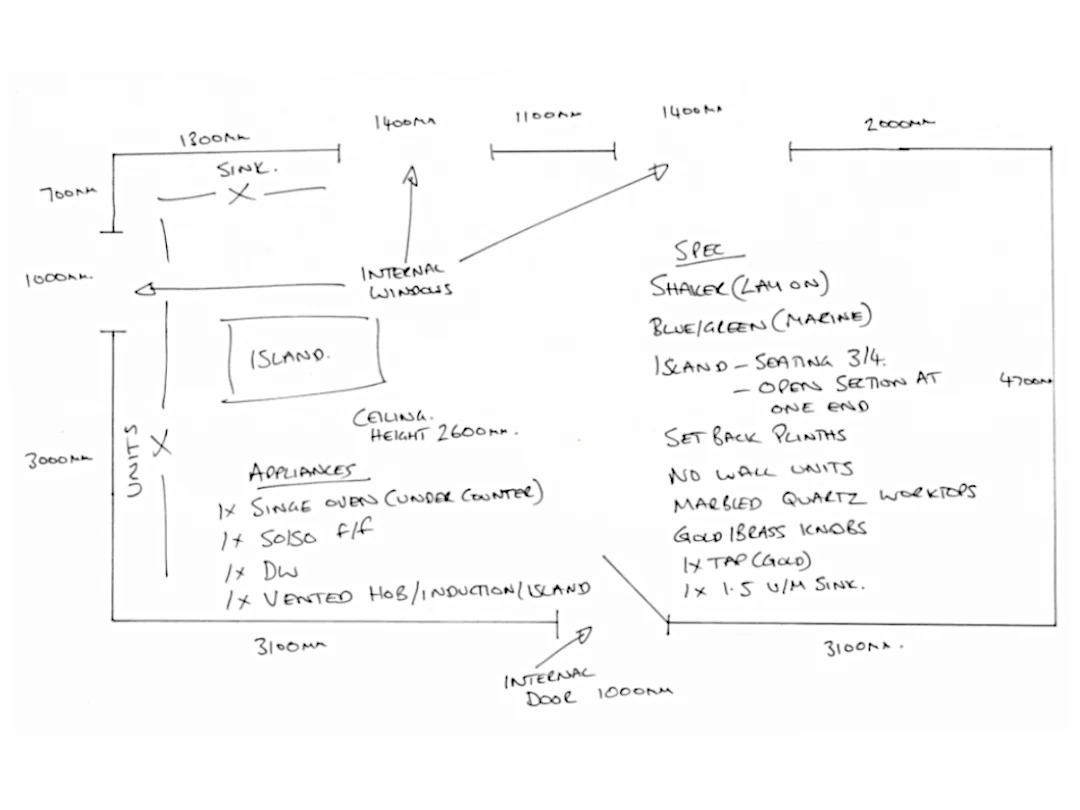 1300MM
1400MM
1100MM
1400MM
2000MM
SINK.
700MM
1000MM.
INTERNAL
WINDOWS
ISLAND.
CEILING.
HEIGHT 2600MM.
3000MM
UNITS
APPLIANCES
1x SINGE OVEN (UNDER COUNTER)
1x 50/50 F/F
1x DW
1x VENTED HOB/INDUCTION/ISLAND
SPEC
SHAKER (LAY ON)
BLUE/GREEN (MARINE)
ISLAND - SEATING 3/4.
- OPEN SECTION AT
ONE END
SET BACK PLINTHS
NO WALL UNITS
MARBLED QUARTZ WORKTOPS
GOLD/BRASS KNOBS
1x TAP (GOLD)
1x 1.5 U/M SINK.
4700MM
3100MM
INTERNAL
DOOR 1000MM
3100MM.